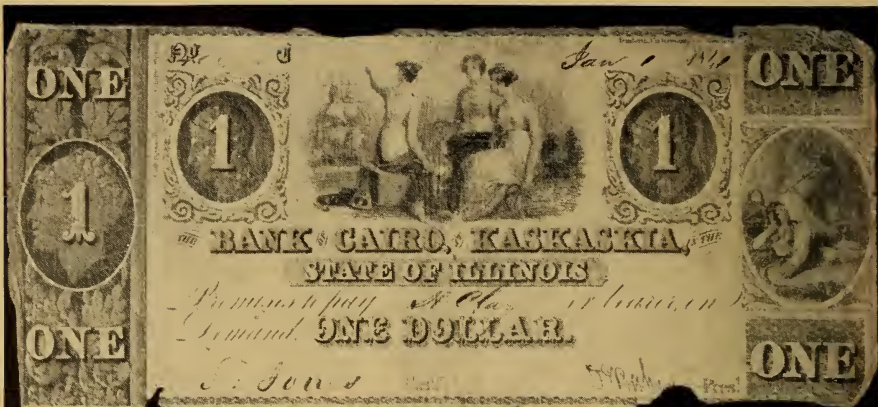 ONE
ONE
No C Jan 1 1841
1
1
1
THE BANK OF CAIRO, AT KASKASKIA, IN THE
STATE OF ILLINOIS
Promises to pay or bearer, on
Demand ONE DOLLAR.
ONE
Jones Pres.
ONE